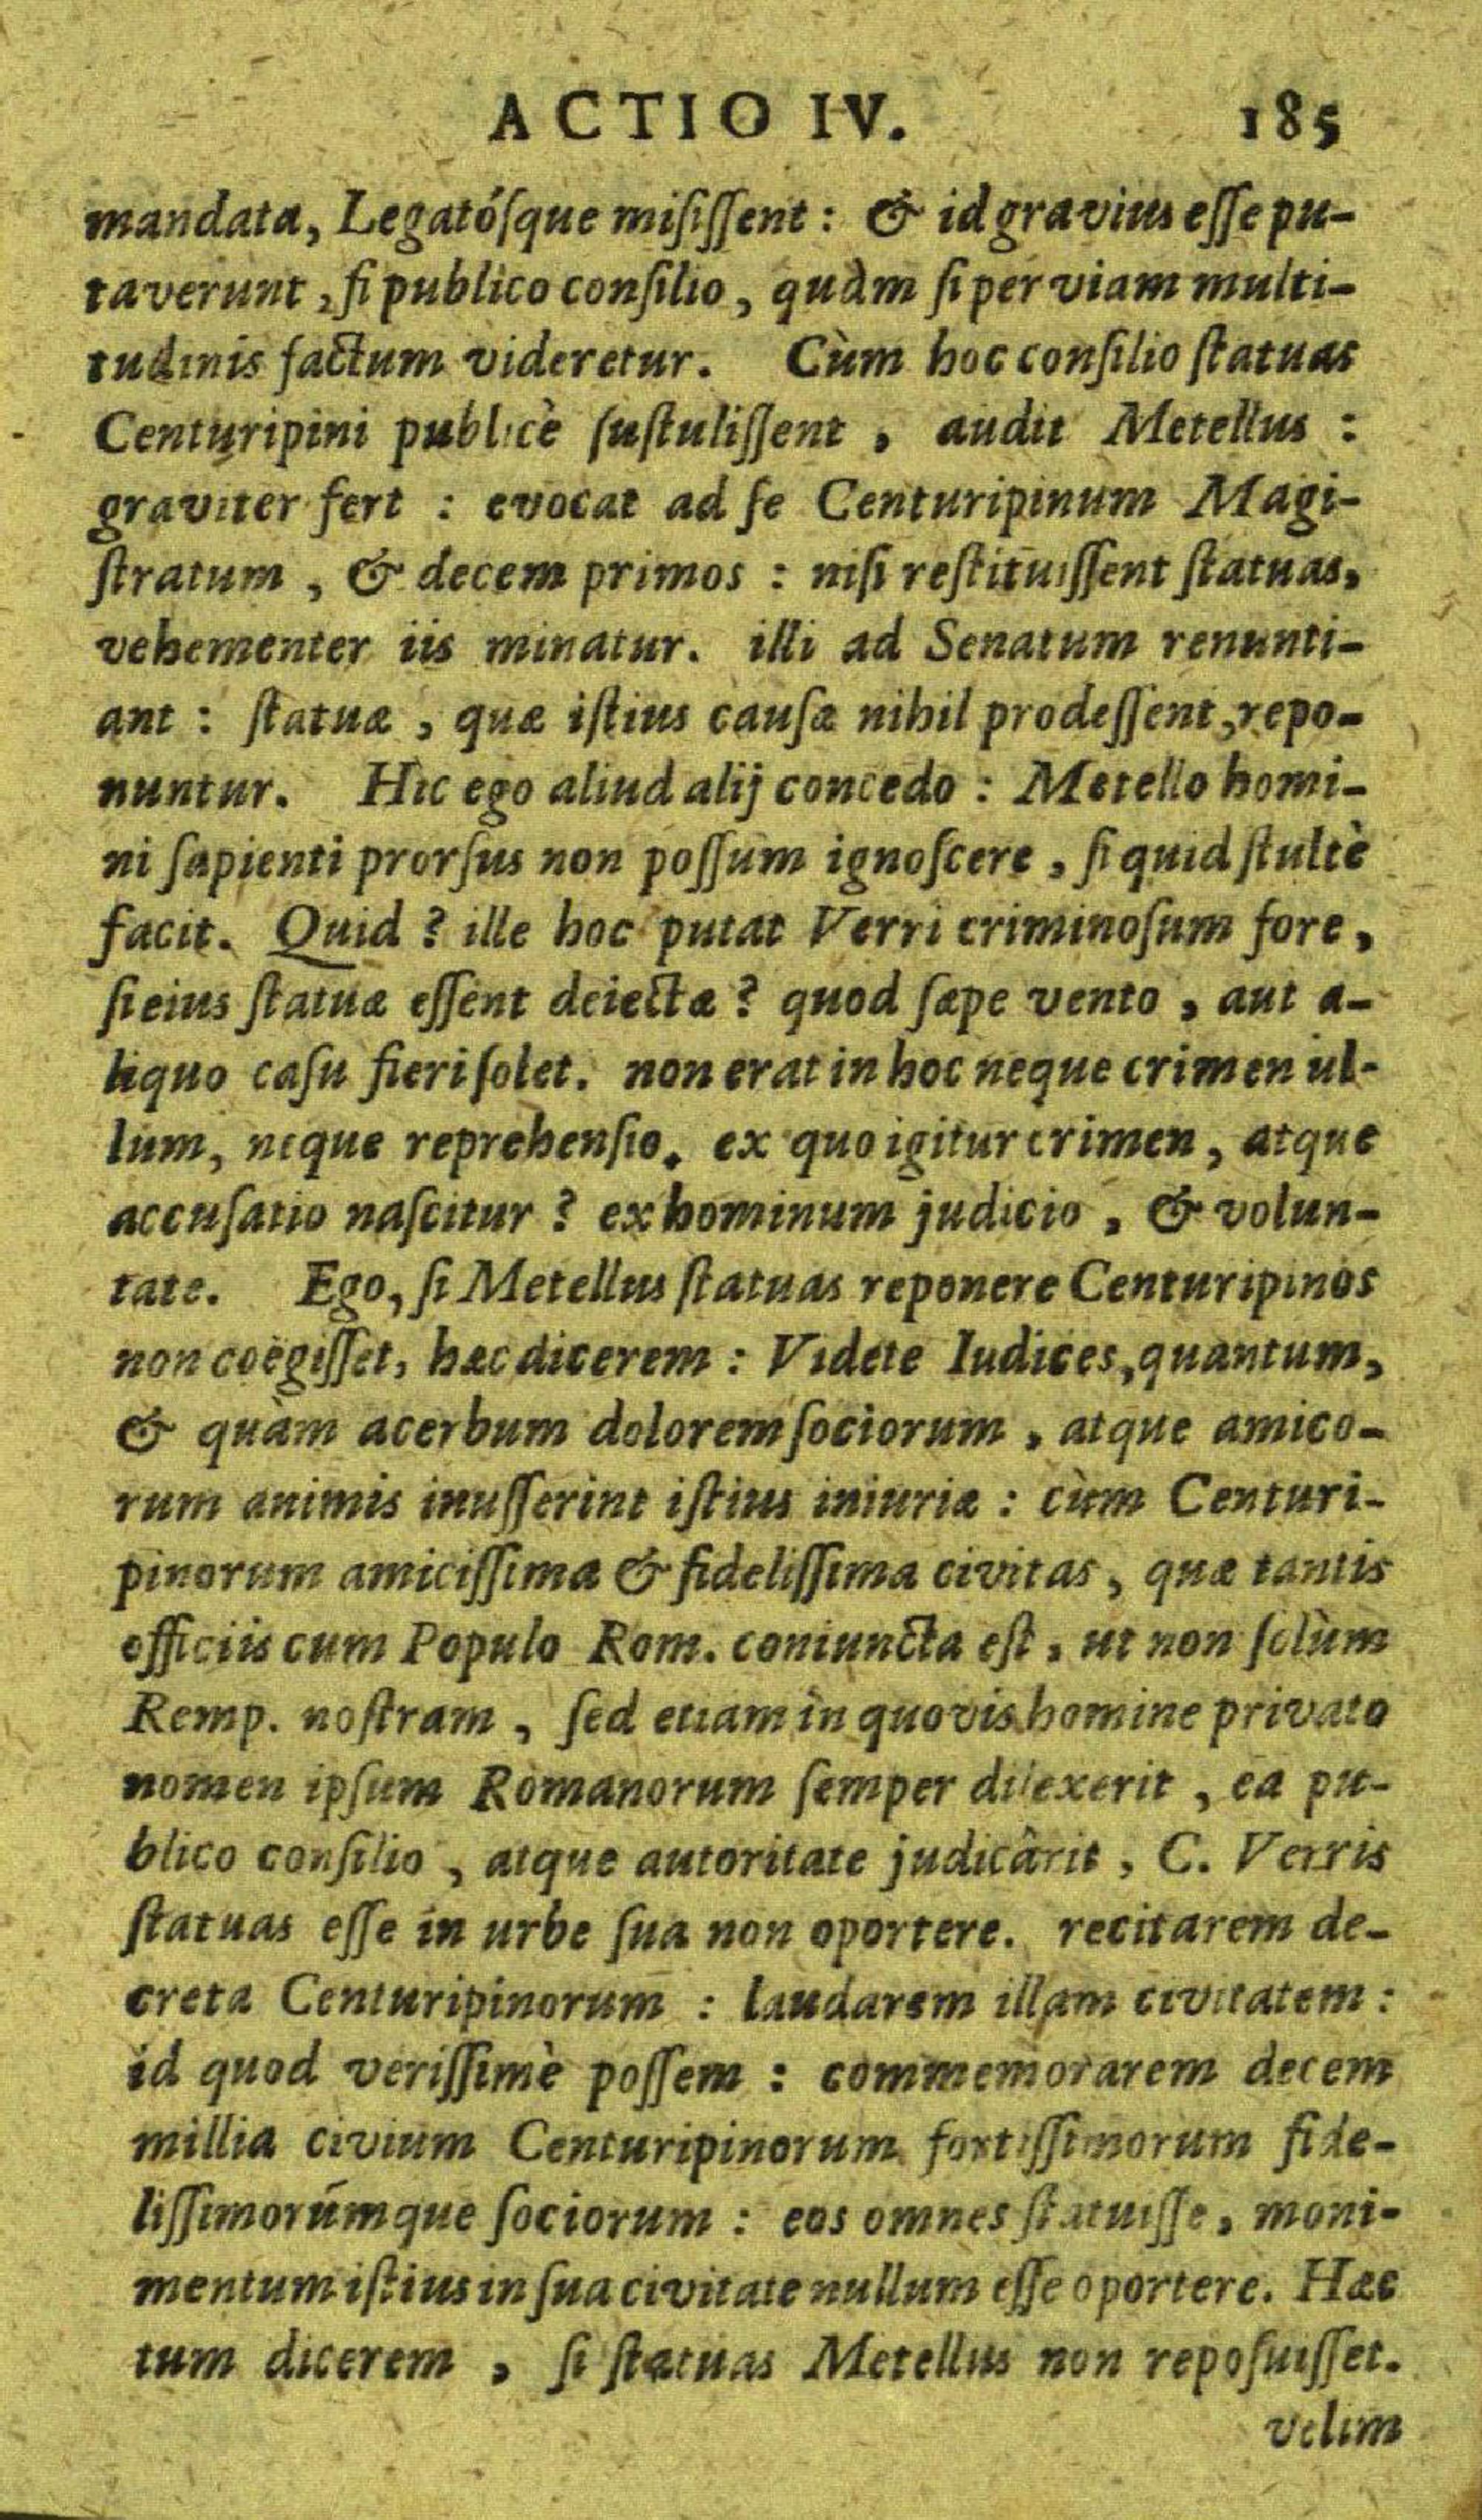 ACTIO IV. 185
mandata, Legatósque misissent: & id gravius esse pu-
taverunt, si publico consilio, quàm si per viam multi-
tudinis factum videretur. Cùm hoc consilio statuas
Centuripini publicè sustulissent, audit Metellus:
graviter fert: evocat ad se Centuripinum Magi-
stratum, & decem primos: nisi restituissent statuas,
vehementer iis minatur. illi ad Senatum renunti-
ant: statuæ, quæ istius causæ nihil prodessent, repo-
nuntur. Hic ego aliud alij concedo: Metello homi-
ni sapienti prorsus non possum ignoscere, si quid stultè
facit. Quid? ille hoc putat Verri criminosum fore,
si eius statuæ essent deiectæ? quod sæpe vento, aut a-
liquo casu fieri solet. non erat in hoc neque crimen ul-
lum, neque reprehensio. ex quo igitur crimen, atque
accusatio nascitur? ex hominum judicio, & volun-
tate. Ego, si Metellus statuas reponere Centuripinos
non coëgisset, hæc dicerem: Videte Iudices, quantum,
& quàm acerbum dolorem sociorum, atque amico-
rum animis inusserint istius iniuriæ: cùm Centuri-
pinorum amicissima & fidelissima civitas, quæ tantis
officiis cum Populo Rom. coniuncta est, ut non solùm
Remp. nostram, sed etiam in quovis homine privato
nomen ipsum Romanorum semper dilexerit, ea pu-
blico consilio, atque autoritate judicârit, C. Verris
statuas esse in urbe sua non oportere. recitarem de-
creta Centuripinorum: laudarem illam civitatem:
id quod verissimè possem: commemorarem decem
millia civium Centuripinorum fortissimorum fide-
lissimorúmque sociorum: eos omnes statuisse, moni-
mentum istius in sua civitate nullum esse oportere. Hæc
tum dicerem, si statuas Metellus non reposuisset.
velim